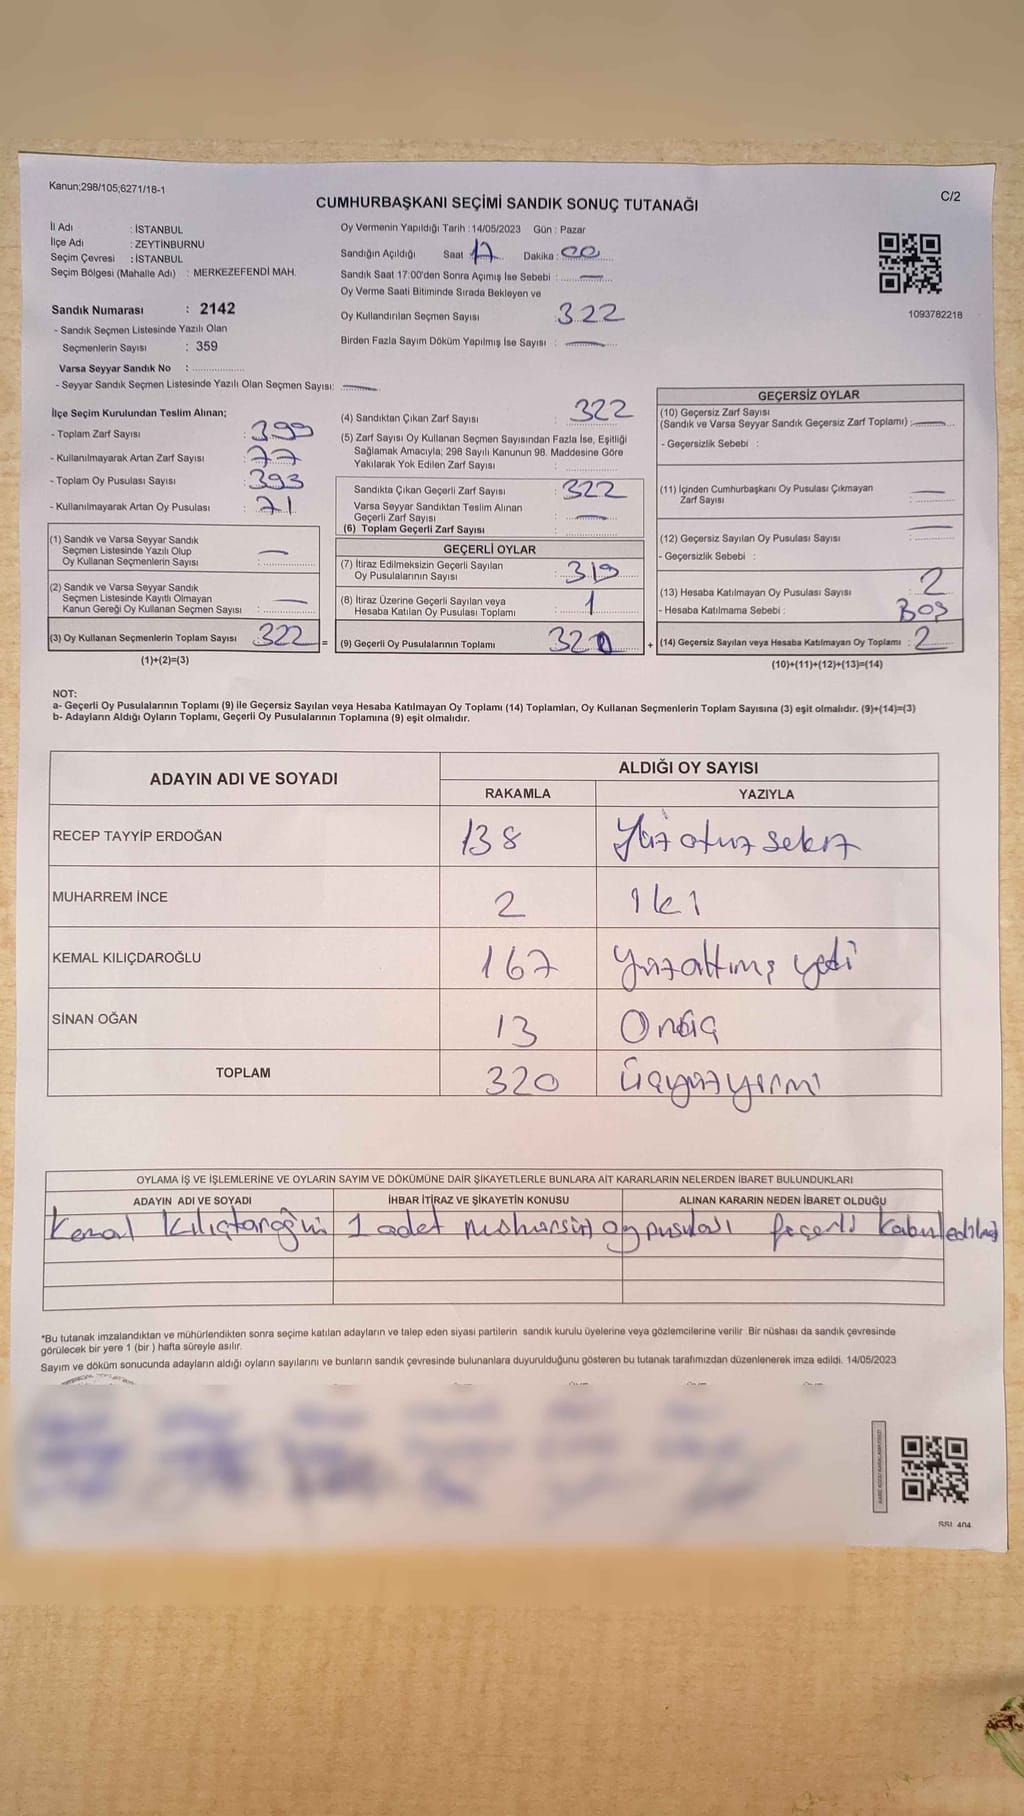 Kanun;298/105;6271/18-1
CUMHURBAŞKANI SEÇİMİ SANDIK SONUÇ TUTANAĞI
C/2
İl Adı : İSTANBUL
İlçe Adı : ZEYTİNBURNU
Seçim Çevresi : İSTANBUL
Seçim Bölgesi (Mahalle Adı) : MERKEZEFENDİ MAH.
Sandık Numarası : 2142
- Sandık Seçmen Listesinde Yazılı Olan
Seçmenlerin Sayısı : 359
Varsa Seyyar Sandık No :
- Seyyar Sandık Seçmen Listesinde Yazılı Olan Seçmen Sayısı: —
Oy Vermenin Yapıldığı Tarih : 14/05/2023 Gün : Pazar
Sandığın Açıldığı Saat 17 Dakika : 00
Sandık Saat 17:00'den Sonra Açımış İse Sebebi : —
Oy Verme Saati Bitiminde Sırada Bekleyen ve
Oy Kullandırılan Seçmen Sayısı : 322
Birden Fazla Sayım Döküm Yapılmış İse Sayısı : —
1093782218
İlçe Seçim Kurulundan Teslim Alınan;
- Toplam Zarf Sayısı : 399
- Kullanılmayarak Artan Zarf Sayısı : 77
- Toplam Oy Pusulası Sayısı : 393
- Kullanılmayarak Artan Oy Pusulası : 71
(1) Sandık ve Varsa Seyyar Sandık
Seçmen Listesinde Yazılı Olup
Oy Kullanan Seçmenlerin Sayısı : —
(2) Sandık ve Varsa Seyyar Sandık
Seçmen Listesinde Kayıtlı Olmayan
Kanun Gereği Oy Kullanan Seçmen Sayısı : —
(3) Oy Kullanan Seçmenlerin Toplam Sayısı : 322 =
(1)+(2)=(3)
(4) Sandıktan Çıkan Zarf Sayısı : 322
(5) Zarf Sayısı Oy Kullanan Seçmen Sayısından Fazla İse, Eşitliği
Sağlamak Amacıyla; 298 Sayılı Kanunun 98. Maddesine Göre
Yakılarak Yok Edilen Zarf Sayısı :
Sandıkta Çıkan Geçerli Zarf Sayısı : 322
Varsa Seyyar Sandıktan Teslim Alınan
Geçerli Zarf Sayısı : —
(6) Toplam Geçerli Zarf Sayısı :
GEÇERLİ OYLAR
(7) İtiraz Edilmeksizin Geçerli Sayılan
Oy Pusulalarının Sayısı : 319
(8) İtiraz Üzerine Geçerli Sayılan veya
Hesaba Katılan Oy Pusulası Toplamı : 1
(9) Geçerli Oy Pusulalarının Toplamı : 320 +
GEÇERSİZ OYLAR
(10) Geçersiz Zarf Sayısı
(Sandık ve Varsa Seyyar Sandık Geçersiz Zarf Toplamı) : —
- Geçersizlik Sebebi :
(11) İçinden Cumhurbaşkanı Oy Pusulası Çıkmayan
Zarf Sayısı : —
(12) Geçersiz Sayılan Oy Pusulası Sayısı : —
- Geçersizlik Sebebi :
(13) Hesaba Katılmayan Oy Pusulası Sayısı : 2
- Hesaba Katılmama Sebebi : Boş
(14) Geçersiz Sayılan veya Hesaba Katılmayan Oy Toplamı : 2
(10)+(11)+(12)+(13)=(14)
NOT:
a- Geçerli Oy Pusulalarının Toplamı (9) ile Geçersiz Sayılan veya Hesaba Katılmayan Oy Toplamı (14) Toplamları, Oy Kullanan Seçmenlerin Toplam Sayısına (3) eşit olmalıdır. (9)+(14)=(3)
b- Adayların Aldığı Oyların Toplamı, Geçerli Oy Pusulalarının Toplamına (9) eşit olmalıdır.
ADAYIN ADI VE SOYADI ALDIĞI OY SAYISI
RAKAMLA YAZIYLA
RECEP TAYYİP ERDOĞAN 138 Yüz otuz sekiz
MUHARREM İNCE 2 iki
KEMAL KILIÇDAROĞLU 167 Yüzaltmış yedi
SİNAN OĞAN 13 Onüç
TOPLAM 320 Üçyüzyirmi
OYLAMA İŞ VE İŞLEMLERİNE VE OYLARIN SAYIM VE DÖKÜMÜNE DAİR ŞİKAYETLERLE BUNLARA AİT KARARLARIN NELERDEN İBARET BULUNDUKLARI
ADAYIN ADI VE SOYADI İHBAR İTİRAZ VE ŞİKAYETİN KONUSU ALINAN KARARIN NEDEN İBARET OLDUĞU
Kemal 1 adet oy pusulası geçerli kabul
*Bu tutanak imzalandıktan ve mühürlendikten sonra seçime katılan adayların ve talep eden siyasi partilerin sandık kurulu üyelerine veya gözlemcilerine verilir .Bir nüshası da sandık çevresinde
görülecek bir yere 1 (bir ) hafta süreyle asılır.
Sayım ve döküm sonucunda adayların aldığı oyların sayılarını ve bunların sandık çevresinde bulunanlara duyurulduğunu gösteren bu tutanak tarafımızdan düzenlenerek imza edildi. 14/05/2023
SSI_404